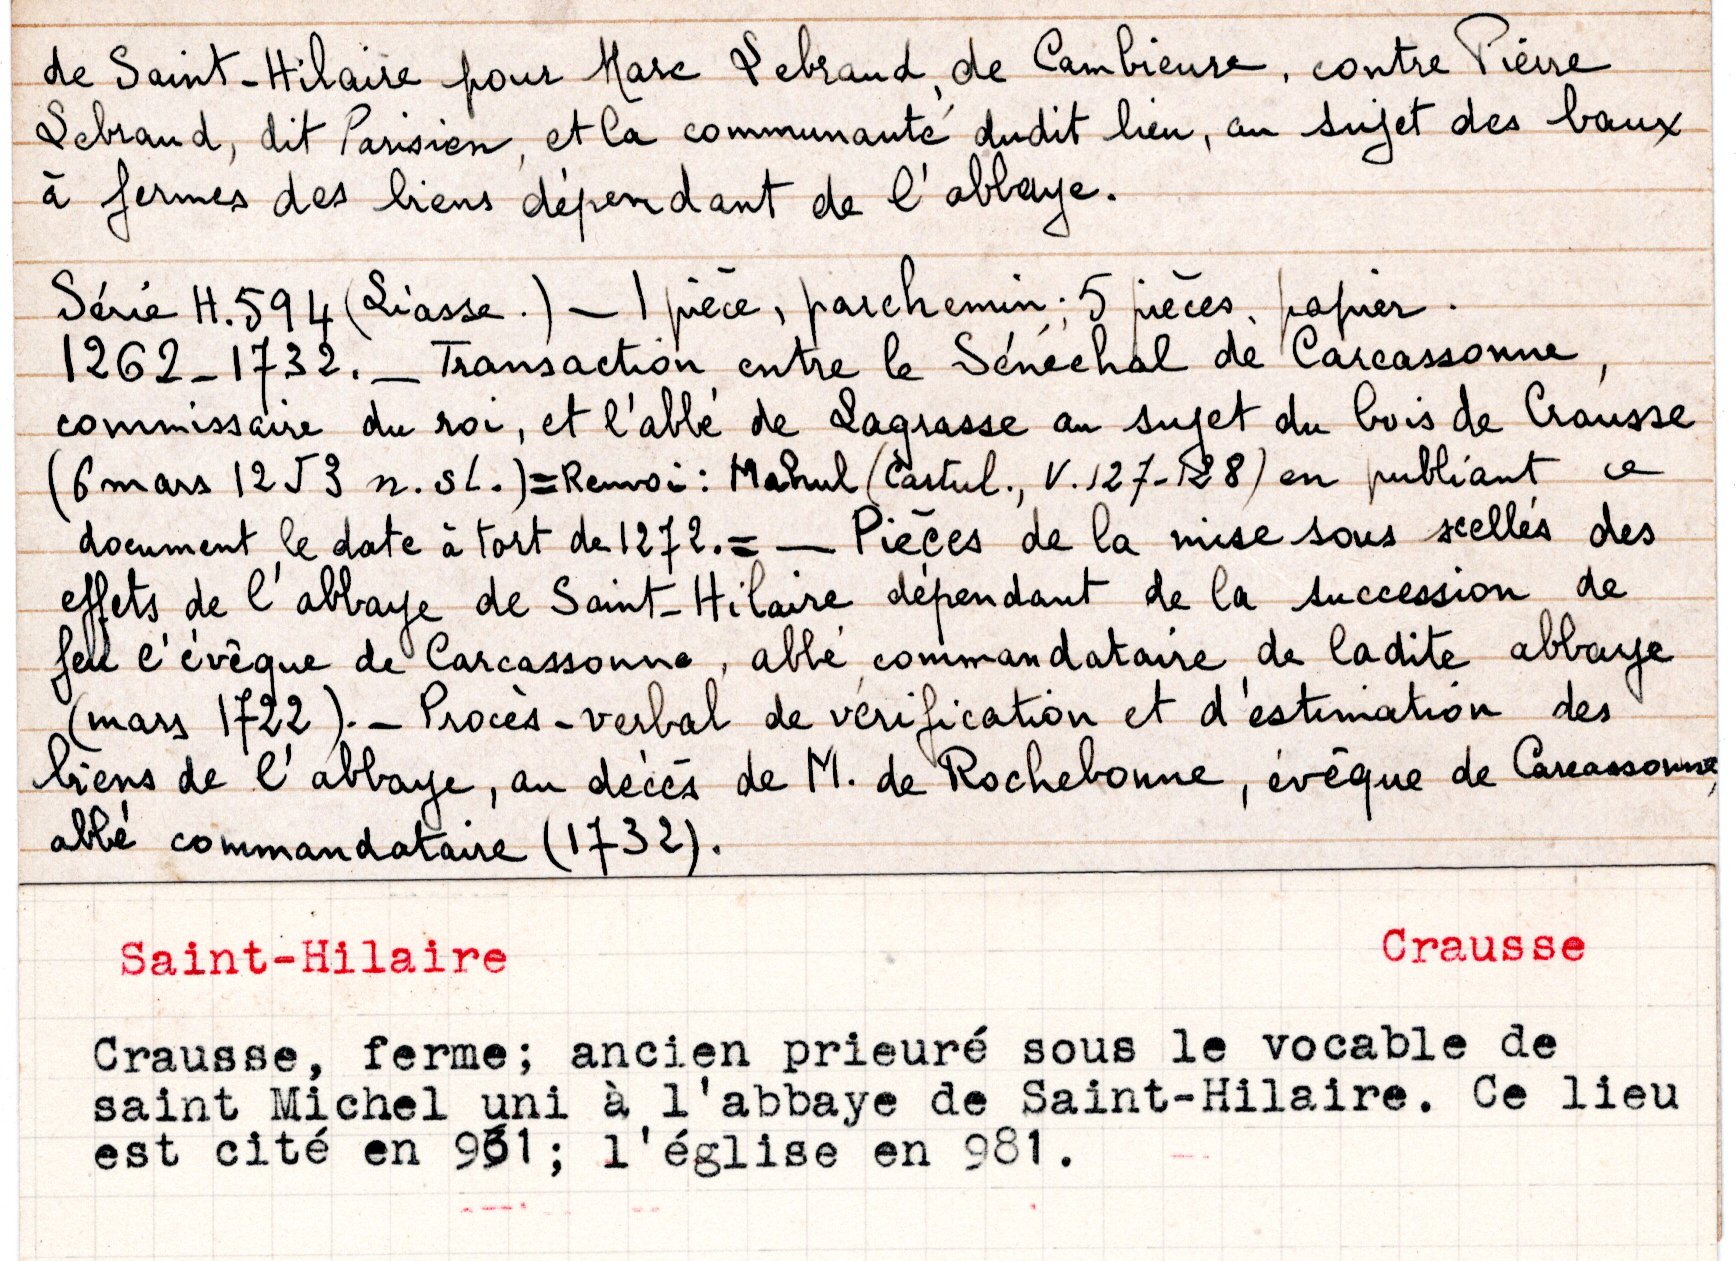 de Saint-Hilaire pour Marc Lebraud, de Cambieure, contre Pierre
Lebraud, dit Parisien, et la communauté dudit lieu, au sujet des baux
à fermes des biens dépendant de l'abbaye.
Série H.594 (Liasse.) — 1 pièce, parchemin; 5 pièces, papier.
1262-1732. — Transaction entre le Sénéchal de Carcassonne,
commissaire du roi, et l'abbé de Lagrasse au sujet du bois de Crausse
(6 mars 1253 n. st.)=Renvoi: Mahul (Cartul., V. 127-128) en publiant ce
document le date à tort de 1272.= — Pièces de la mise sous scellés des
effets de l'abbaye de Saint-Hilaire dépendant de la succession de
feu l'évêque de Carcassonne, abbé commandataire de ladite abbaye
(mars 1722). — Procès-verbal de vérification et d'estimation des
biens de l'abbaye, au décès de M. de Rochebonne, évêque de Carcassonne,
abbé commandataire (1732).
Saint-Hilaire Crausse
Crausse, ferme; ancien prieuré sous le vocable de
saint Michel uni à l'abbaye de Saint-Hilaire. Ce lieu
est cité en ; l'église en 981.